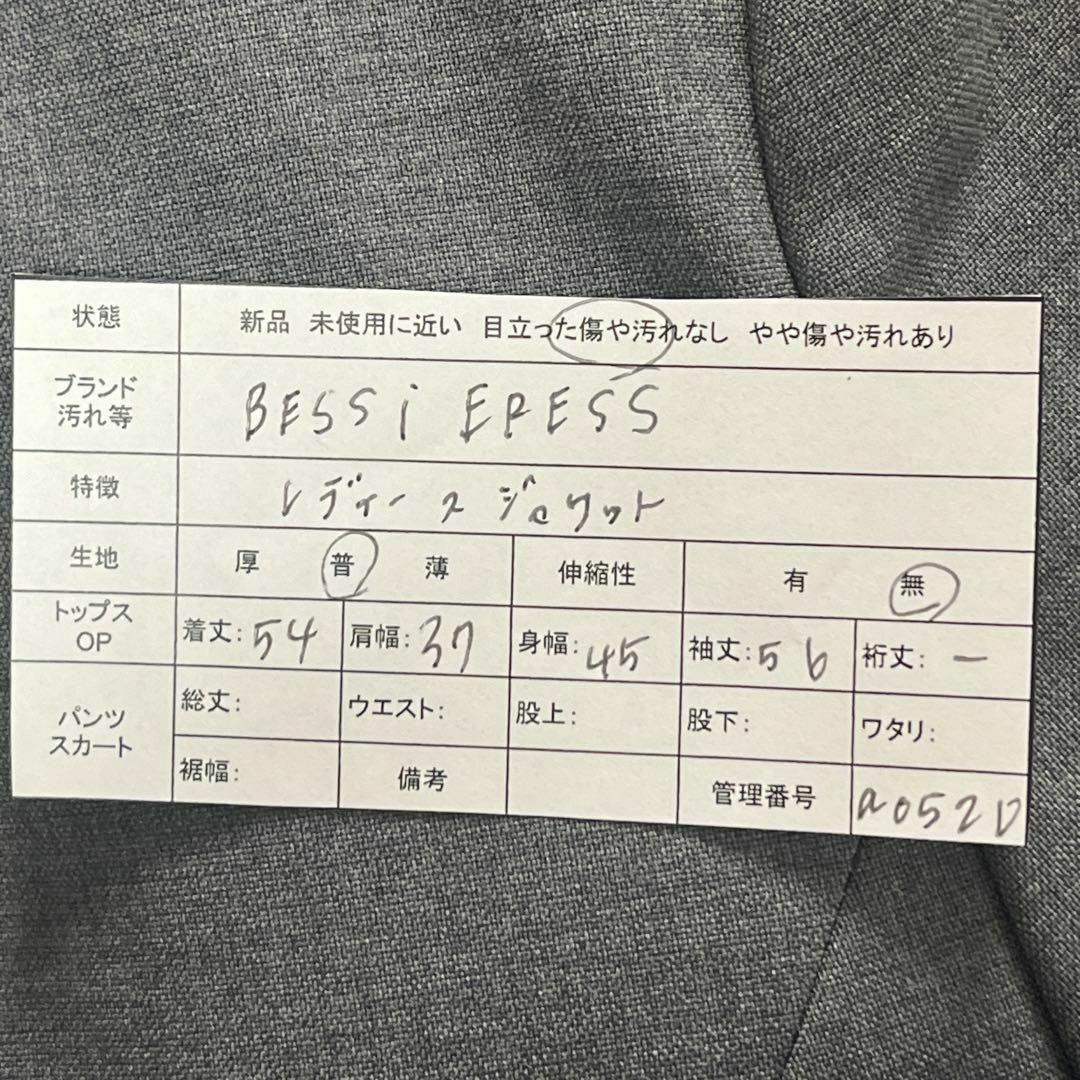 状態 新品 未使用に近い 目立った傷や汚れなし やや傷や汚れあり
ブランド
汚れ等
BESSI EPESS
特徴 レディース ジャケット
生地 厚 普 薄 伸縮性 有 無
トップス
OP
着丈:54 肩幅:37 身幅:45 袖丈:56 裄丈:ー
パンツ
スカート
総丈: ウエスト: 股上: 股下: ワタリ:
裾幅: 備考 管理番号